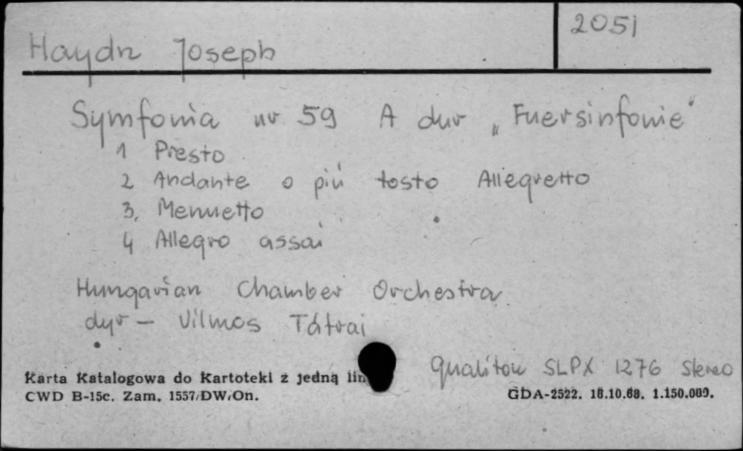 Haydn Joseph 2051
Symfonia nr 59 A dur „Fuersinfonie"
1 Presto
2 Andante o più tosto Allegretto
3. Menuetto
4 Allegro assai
Hungarian Chamber Orchestra
dyr – Vilmos Tátrai
Qualiton SLPX 1276 Stereo
Karta Katalogowa do Kartoteki z jedną lin
CWD B-15c. Zam. 1557/DW/On. GDA-2522. 18.10.68. 1.150.000.